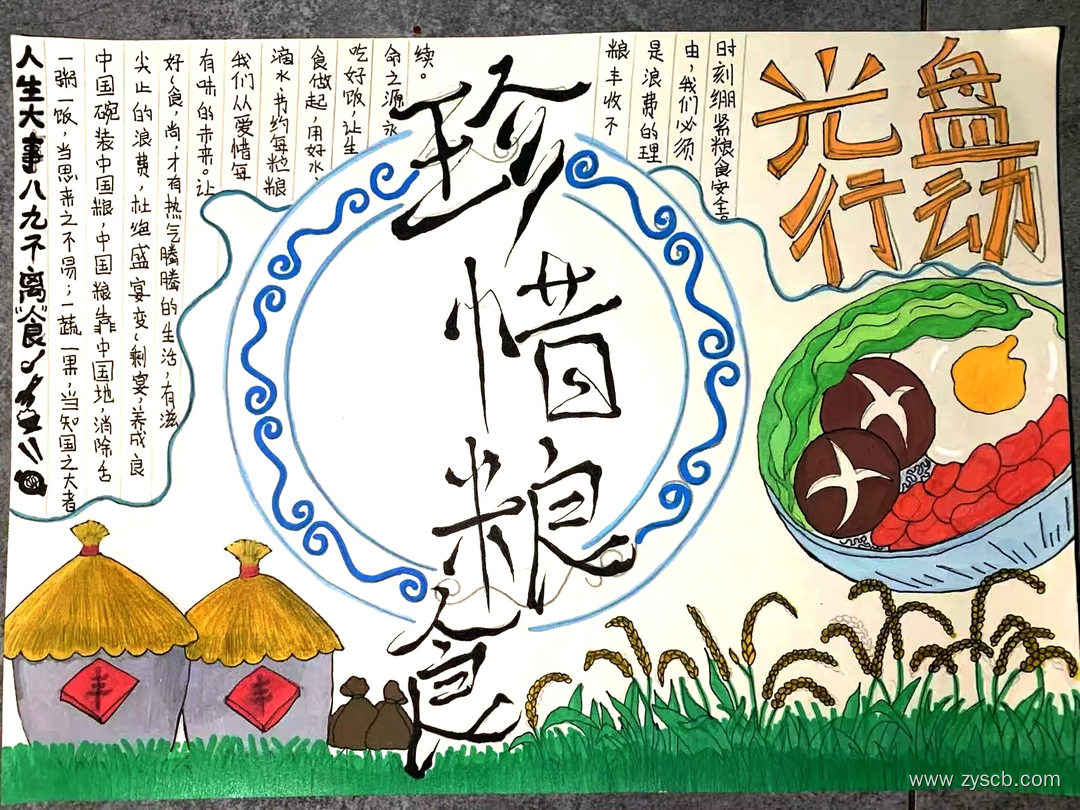 人生大事八九不离"食"
一粥一饭,当思来之不易;一蔬一果,当知国之大者
中国碗装中国粮,中国粮靠中国地,消除舌
尖止的浪费,杜绝盛宴变"剩宴",养成良
好"食"尚,才有热气腾腾的生活,有滋
有味的未来。让
我们从爱惜每
滴水,节约每粒粮
食做起,用好水
吃好饭,让生
命之源永
续。
珍惜粮食
粮丰收不
是浪费的理
由,我们必须
时刻绷紧粮食安全。
光盘
行动
丰
丰
www.zyscb.com